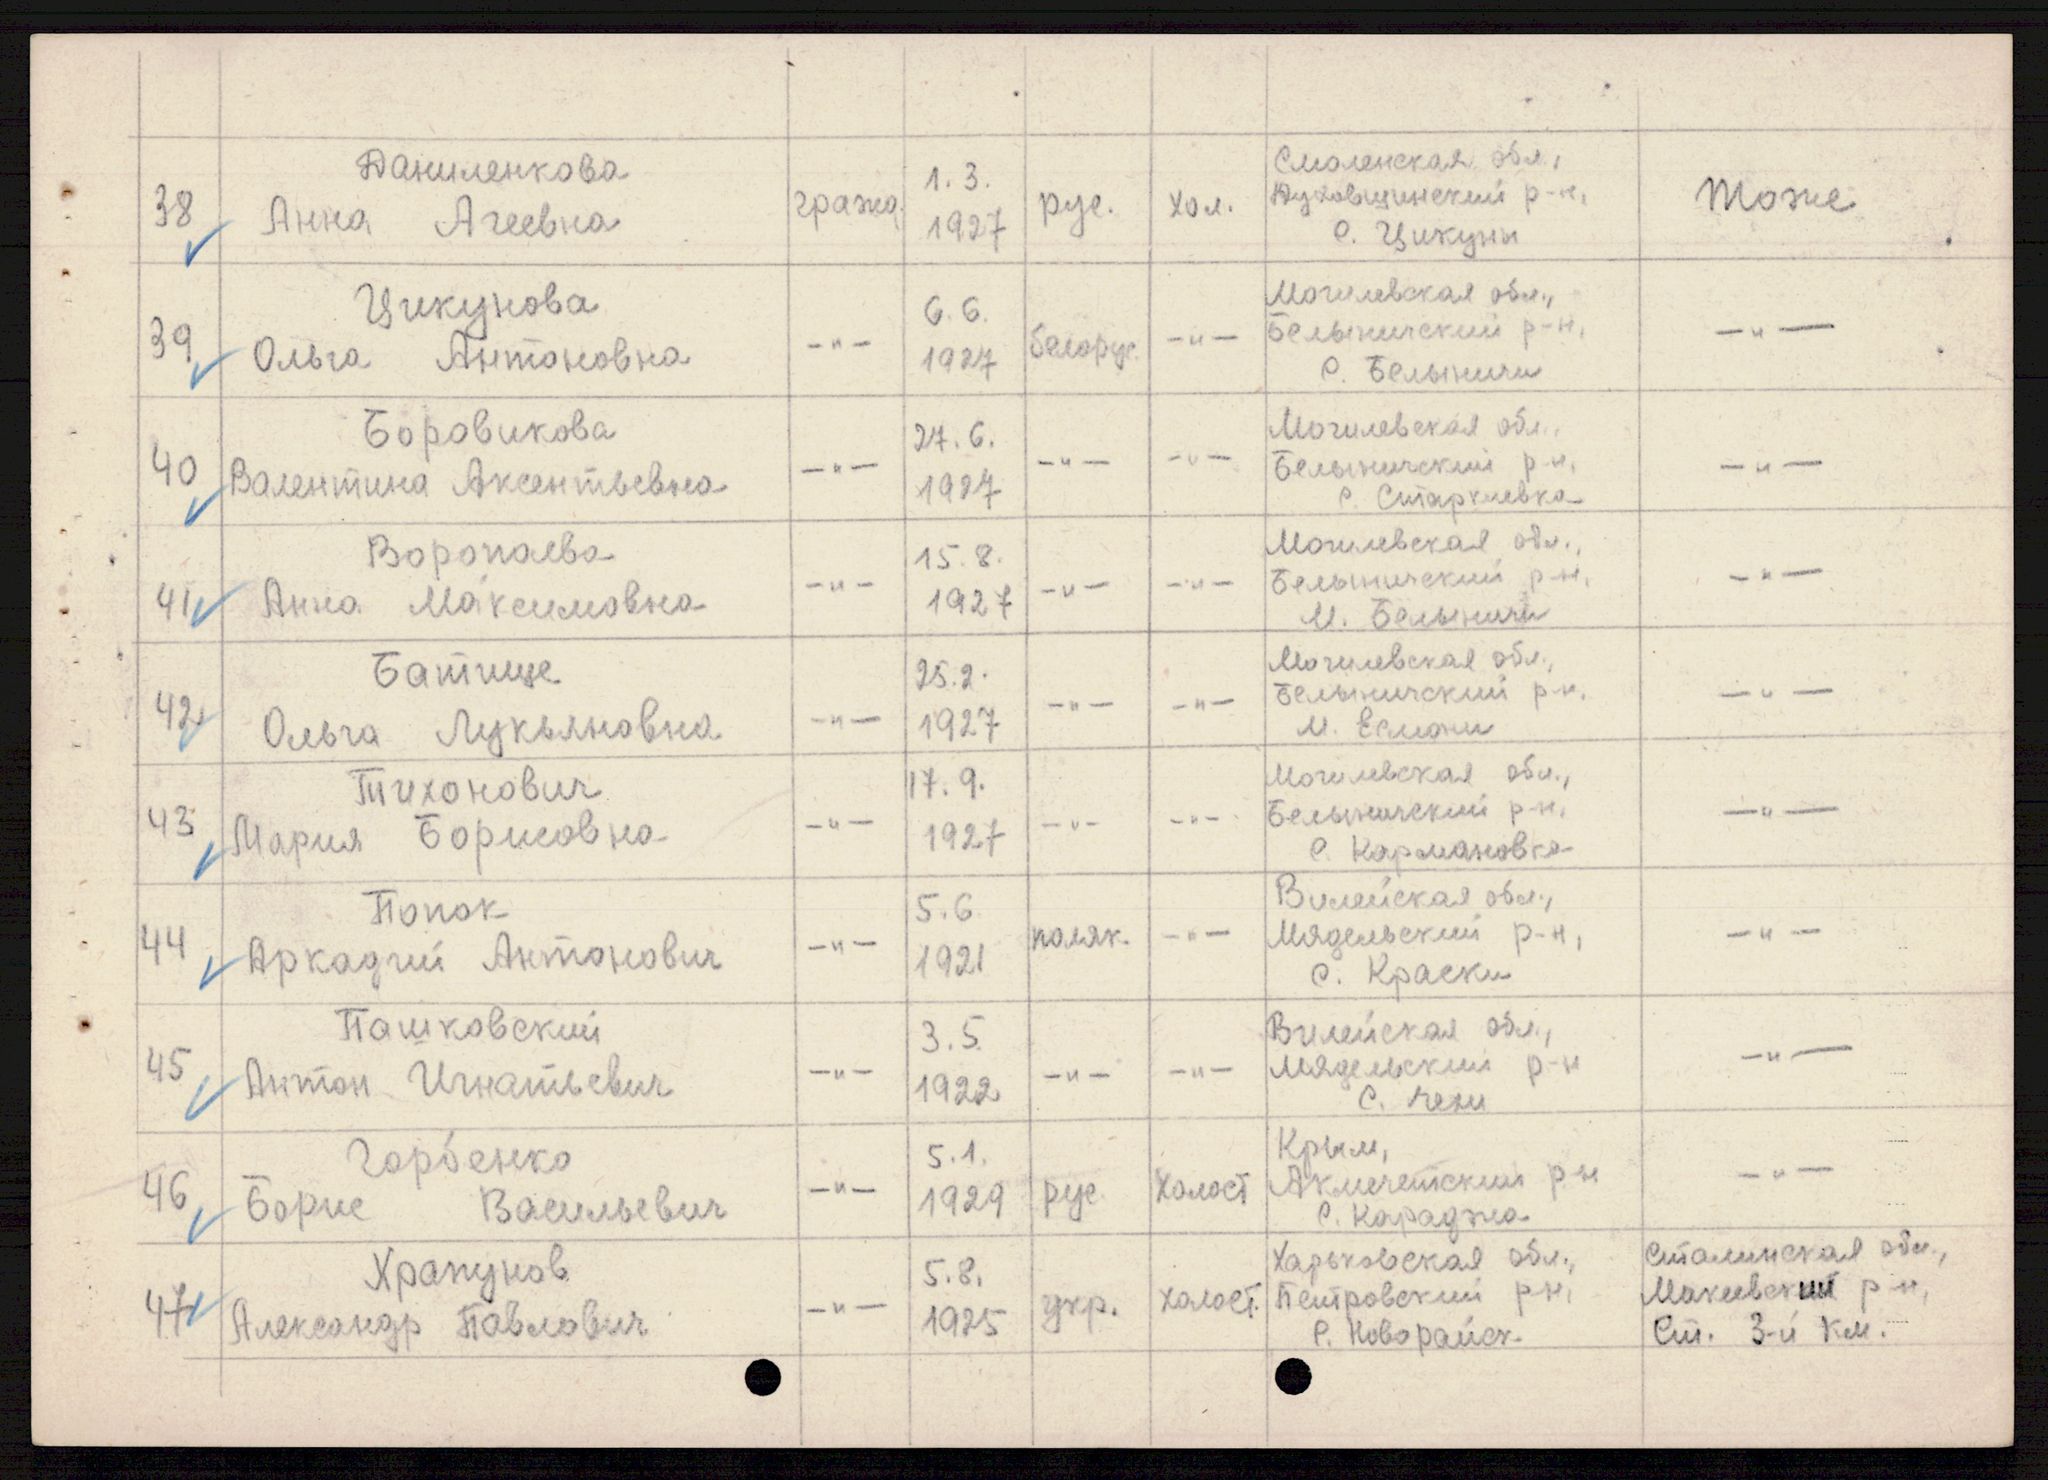 38 Даниленкова Анна Агеевна гражд. 1.3. 1927 рус. хол. Смоленская обл., Духовщинский р-н, с. Цикуны Тоже
39 Цикунова Ольга Антоновна -"- 6.6. 1927 белорус. -"- Могилевская обл., Белыничский р-н, с. Белыничи -"-
40 Боровикова Валентина Аксентьевна -"- 27.6. 1927 -"- -"- Могилевская обл., Белыничский р-н, с. -"-
41 Воропаева Анна Максимовна -"- 15.8. 1927 -"- -"- Могилевская обл., Белыничский р-н, М. Белыничи -"-
42 Батище Ольга Лукьяновна -"- 25.2. 1927 -"- -"- Могилевская обл., Белыничский р-н, М. Есмоны -"-
43 Тихонович Мария Борисовна -"- 17.9. 1927 -"- -"- Могилевская обл., Белыничский р-н, с. Кармановка -"-
44 Попок Аркадий Антонович -"- 5.6 1921 поляк. -"- Вилейская обл., Мядельский р-н, с. Краски -"-
45 Пашковский Антон Игнатьевич -"- 3.5. 1922 -"- -"- Вилейская обл., Мядельский р-н с. -"-
46 Горбенко Борис Васильевич -"- 5.1. 1929 рус. холост Крым, Акмечетский р-н с. Караджа -"-
47 Храпунов Александр Павлович -"- 5.8. 1925 укр. холост. Харьковская обл., Петровский р-н, с. Новорайск Сталинская обл., Макеевский р-н, Ст. 3-й км.